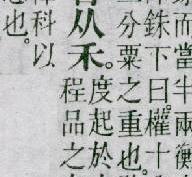 而當半兩衡
銖下曰。權十
分粟之重也。
从禾。
度起於
程品之
科以
也。